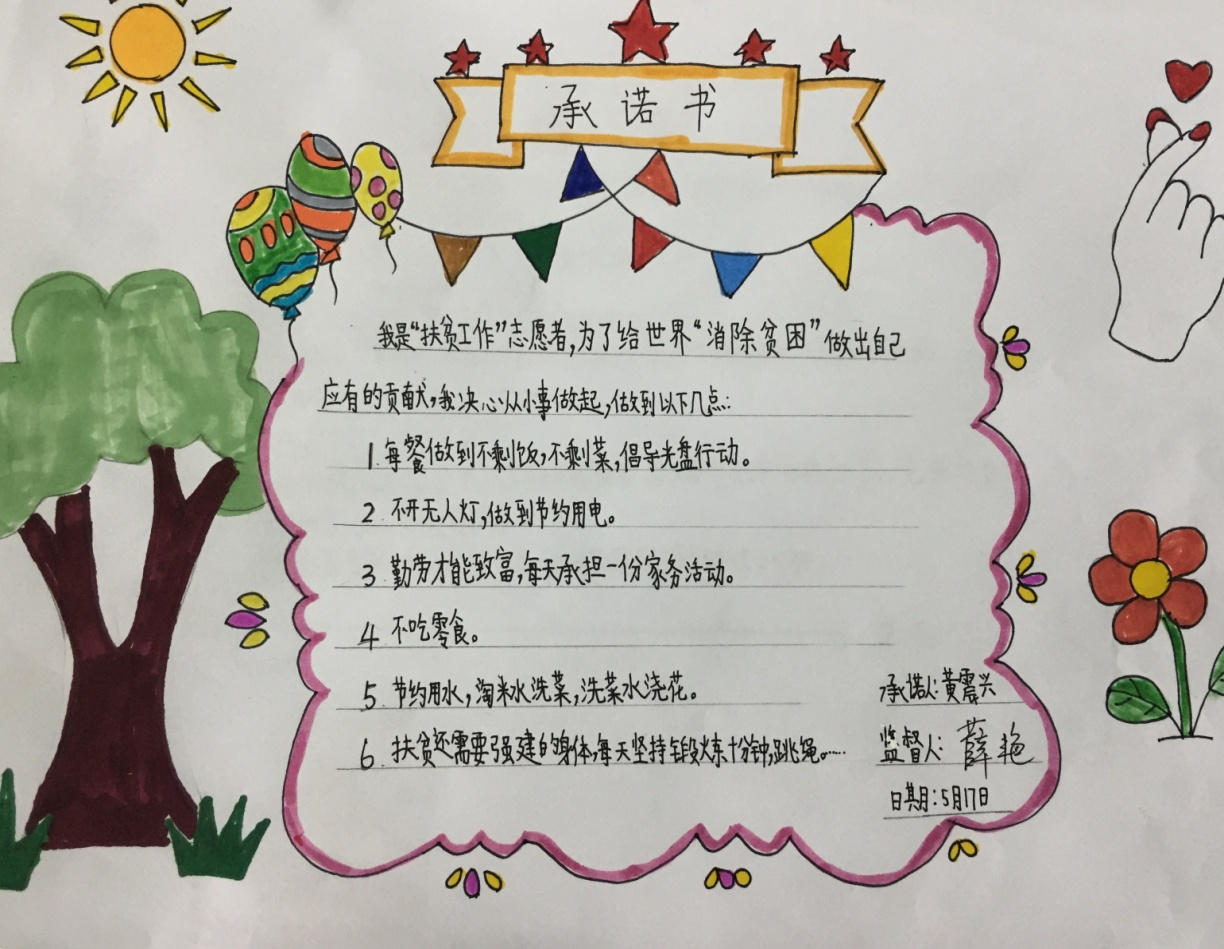 承诺书
我是“扶贫工作”志愿者,为了给世界“消除贫困”做出自己
应有的贡献,我决心从小事做起,做到以下几点:
1.每餐做到不剩饭,不剩菜,倡导光盘行动。
2.不开无人灯,做到节约用电。
3.勤劳才能致富,每天承担一份家务活动。
4.不吃零食。
5.节约用水,淘米水洗菜,洗菜水浇花。
6.扶贫还需要强建的身体,每天坚持锻炼十分钟,跳绳。……
承诺人:黄震兴
监督人:薛艳
日期:5月17日